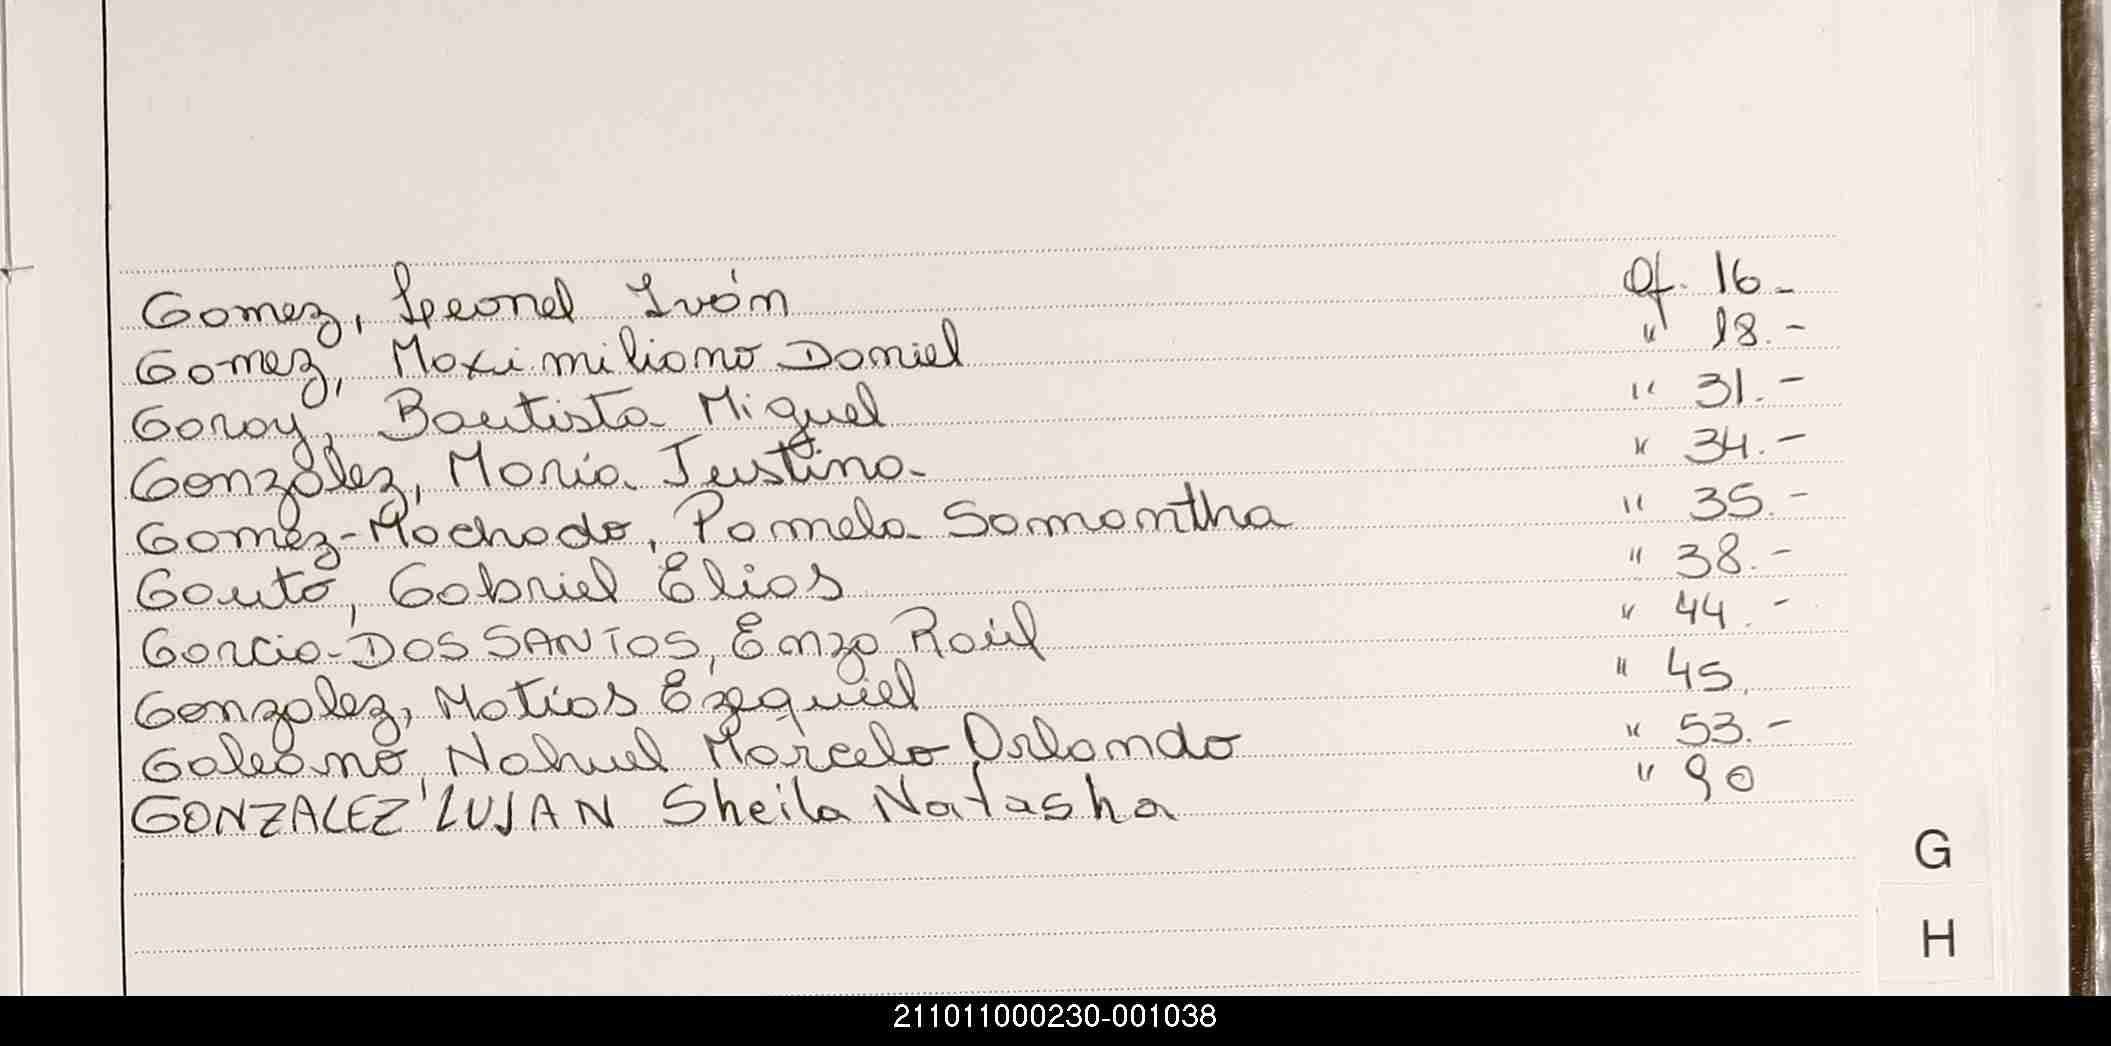 Gomez, Leonel Iván Of. 16.-
Gomez, Maximiliano Daniel " 18.-
Garay, Bautista Miguel " 31.-
González, María Justina.- " 34.-
Gomez-Machado, Pamela Samantha " 35.-
Gauto, Gabriel Elias " 38.-
Garcia-DOS SANTOS, Enzo Raúl " 44.-
Gonzalez, Matías Ezequiel " 45.
Galeano, Nahuel Marcelo Orlando " 53.-
GONZALEZ LUJAN Sheila Natasha " 90
G
H
211011000230-001038